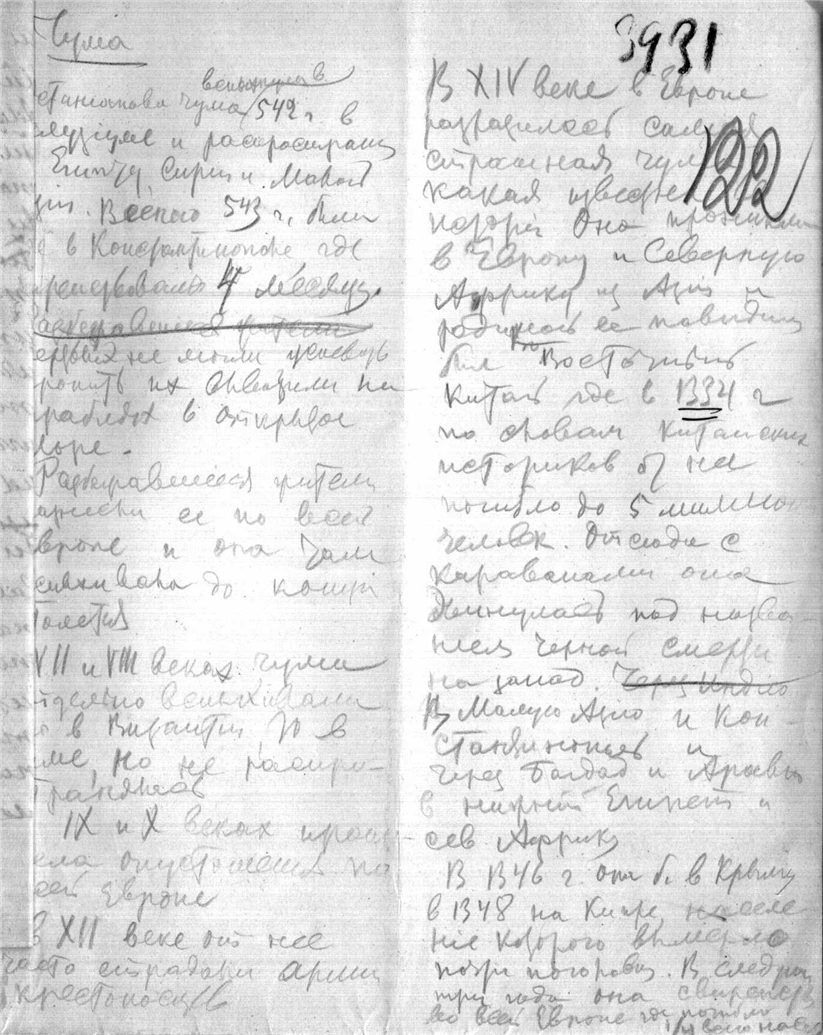 Чума
вспыхнула в
чума 542 г. в
и распростран
Египту, Сирии и Малой
Весною 543 г. были
в Константинополе, где
4 месяца.
не могли успевать
их сваливали на
кораблях в открытое
море.
Разбежавшиеся жители
ее по всей
Европе и она там
вспыхивала до конца
столетия
VII и VIII веках чума
отдельно вспыхивала
в Византии, то в
но не распро-
странялась
IX и X веках произ-
вела опустошения по
всей Европе
В XII веке от нее
часто страдали армии
крестоносцев
3931
122
В XIV веке в Европе
разразилась самая
страшная чума
какая известна
Она проникла
в Европу и Северную
Африку из Азии и
родиной ее повидим
был Восточный
Китай где в 1334 г
по словам китайских
историков от нея
погибло до 5 миллион
человек. Отсюда с
караванами она
двинулась под назва-
нием черной смерти
на запад. Через Индию
В Малую Азию и Кон-
стантинополь и
через Багдад и Аравию
в нижний Египет и
сев Африку
В 1346 г. она б. в Крыму
в 1348 на Кипре, населе
ние которого вымерло
почти поголовно. В следующ
три года она свирепств
во всей Европе где погибло